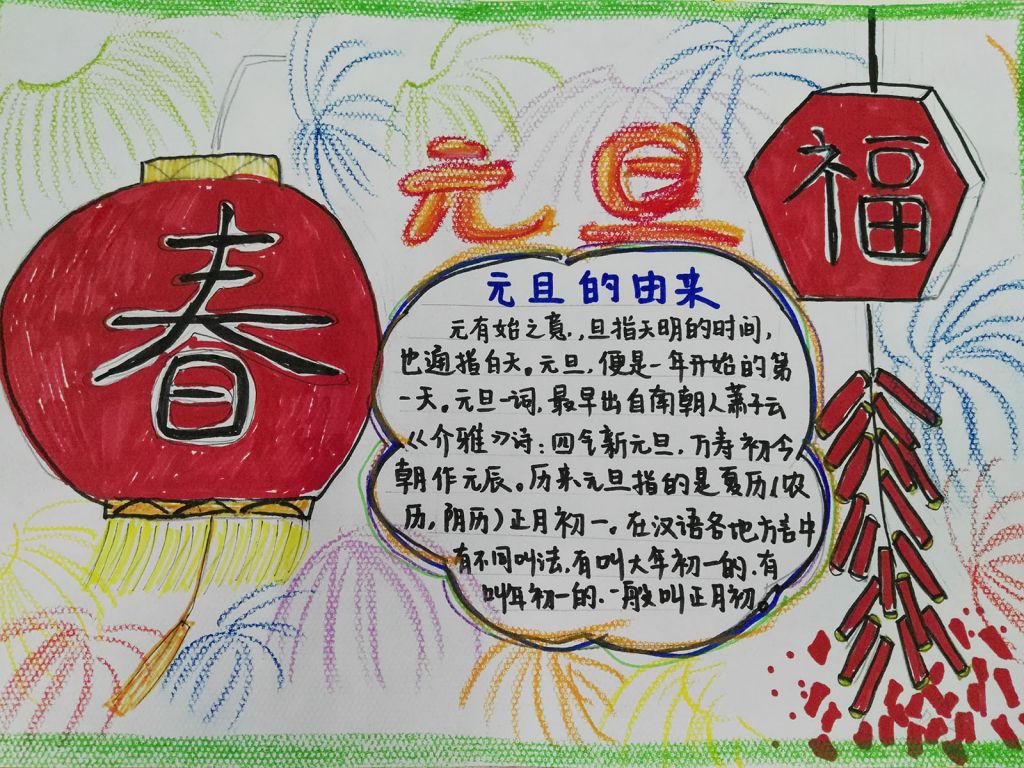 春
元旦
福
元旦的由来
元有始之意,旦指天明的时间,
也通指白天。元旦,便是一年开始的第
一天。元旦一词,最早出自南朝人萧子云
《介雅》诗:四气新元旦,万寿初今
朝作元辰。历来元旦指的是夏历(农
历,阴历)正月初一。在汉语各地方言中
有不同叫法,有叫大年初一的,有
叫年初一的,一般叫正月初。